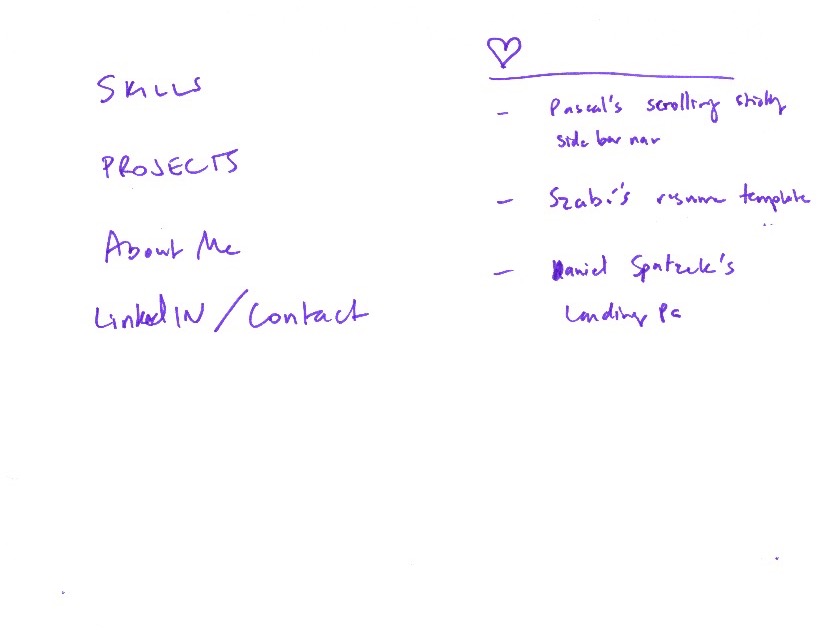 SKILLS
PROJECTS
About Me
LinkedIN / Contact
♡
- Pascal's scrolling sticky
side bar nav
- Szabi's resume template
- Daniel Spatzek's
Landing Pa